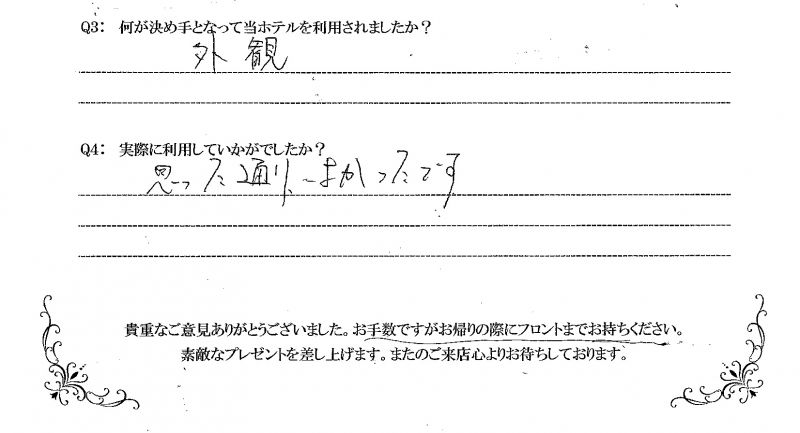 Q3: 何が決め手となって当ホテルを利用されましたか？
外観
Q4: 実際に利用していかがでしたか？
思った通り、よかったです
貴重なご意見ありがとうございました。お手数ですがお帰りの際にフロントまでお持ちください。
素敵なプレゼントを差し上げます。またのご来店心よりお待ちしております。